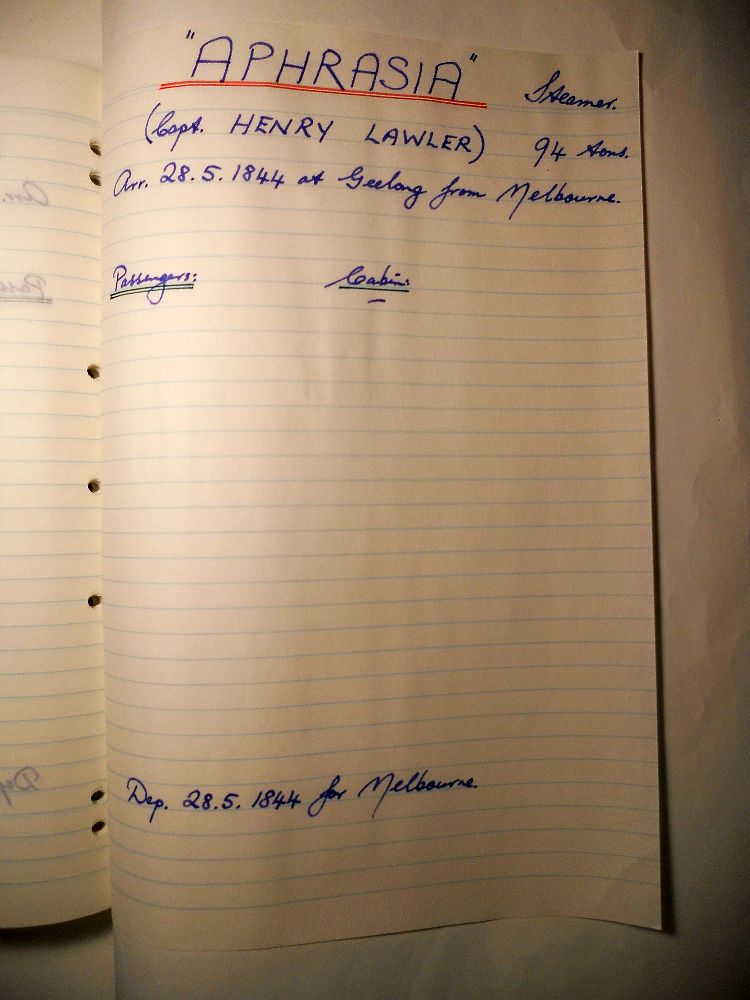 "APHRASIA" Steamer.
(Capt. HENRY LAWLER) 94 tons.
Arr. 28.5.1844 at Geelong from Melbourne.
Passengers: Cabin:
Dep. 28.5.1844 for Melbourne.